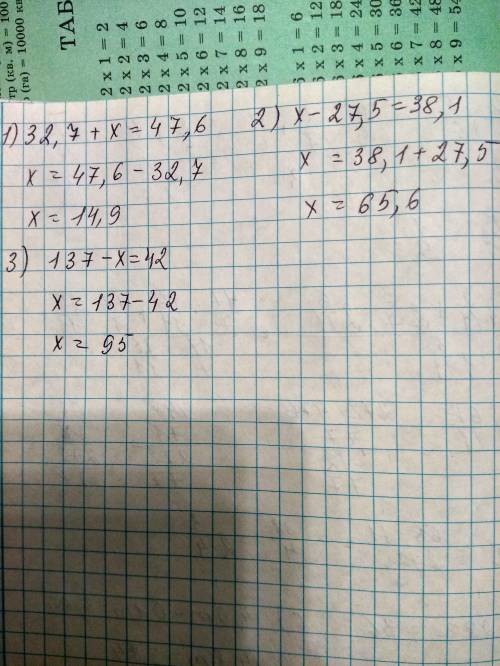 тр (кв. м) = 100
(га) = 10000 кв
ТАБ
2 x 1 = 2
2 x 2 = 4
2 x 3 = 6
2 x 4 = 8
2 x 5 = 10
2 x 6 = 12
2 x 7 = 14
2 x 8 = 16
2 x 9 = 18
x 1 = 6
x 2 = 12
x 3 = 18
x 4 = 24
x 5 = 30
x 6 = 36
x 7 = 42
x 8 = 48
x 9 = 54
1) 32,7 + x = 47,6
x = 47,6 - 32,7
x = 14,9
2) x - 27,5 = 38,1
x = 38,1 + 27,5
x = 65,6
3) 137 - x = 42
x = 137 - 42
x = 95